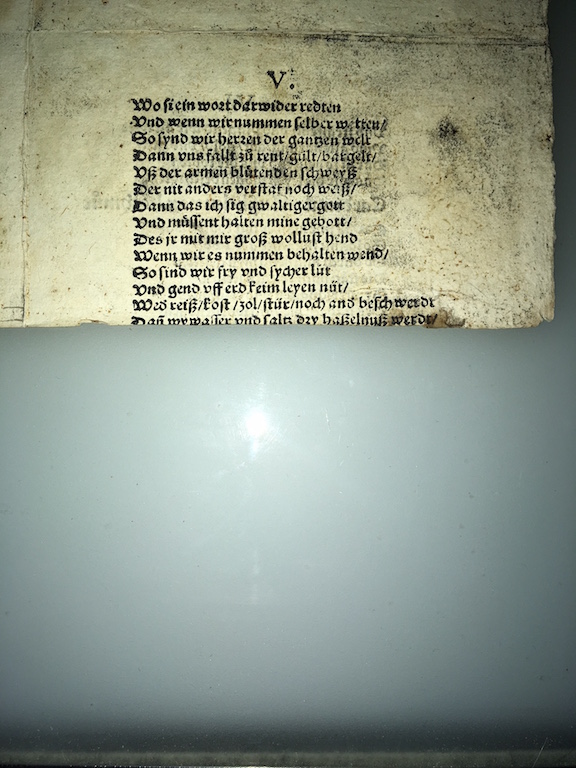 V.
Wo si ein wort darwider redten
Vnd wenn wir nummen selber wetten/
So synd wir herren der gantzen welt
Dann vns fallt zů rent/gült/bargelt/
Vß der armen blůtenden schweyß
Der nit anders verstat noch weiß/
Dann das ich sig gwaltiger gott
Vnd müssent halten mine gebott/
Des jr mit mir groß wollust hend
Wenn wir es nummen behalten wend/
So sind wir fry vnd sycher lüt
Vnd gend vff erd keim leyen nüt/
Wed reiß/kost/zol/stür/noch and beschwerdt
Dañ wywasser vnd saltz dry haßelnuß werdt/